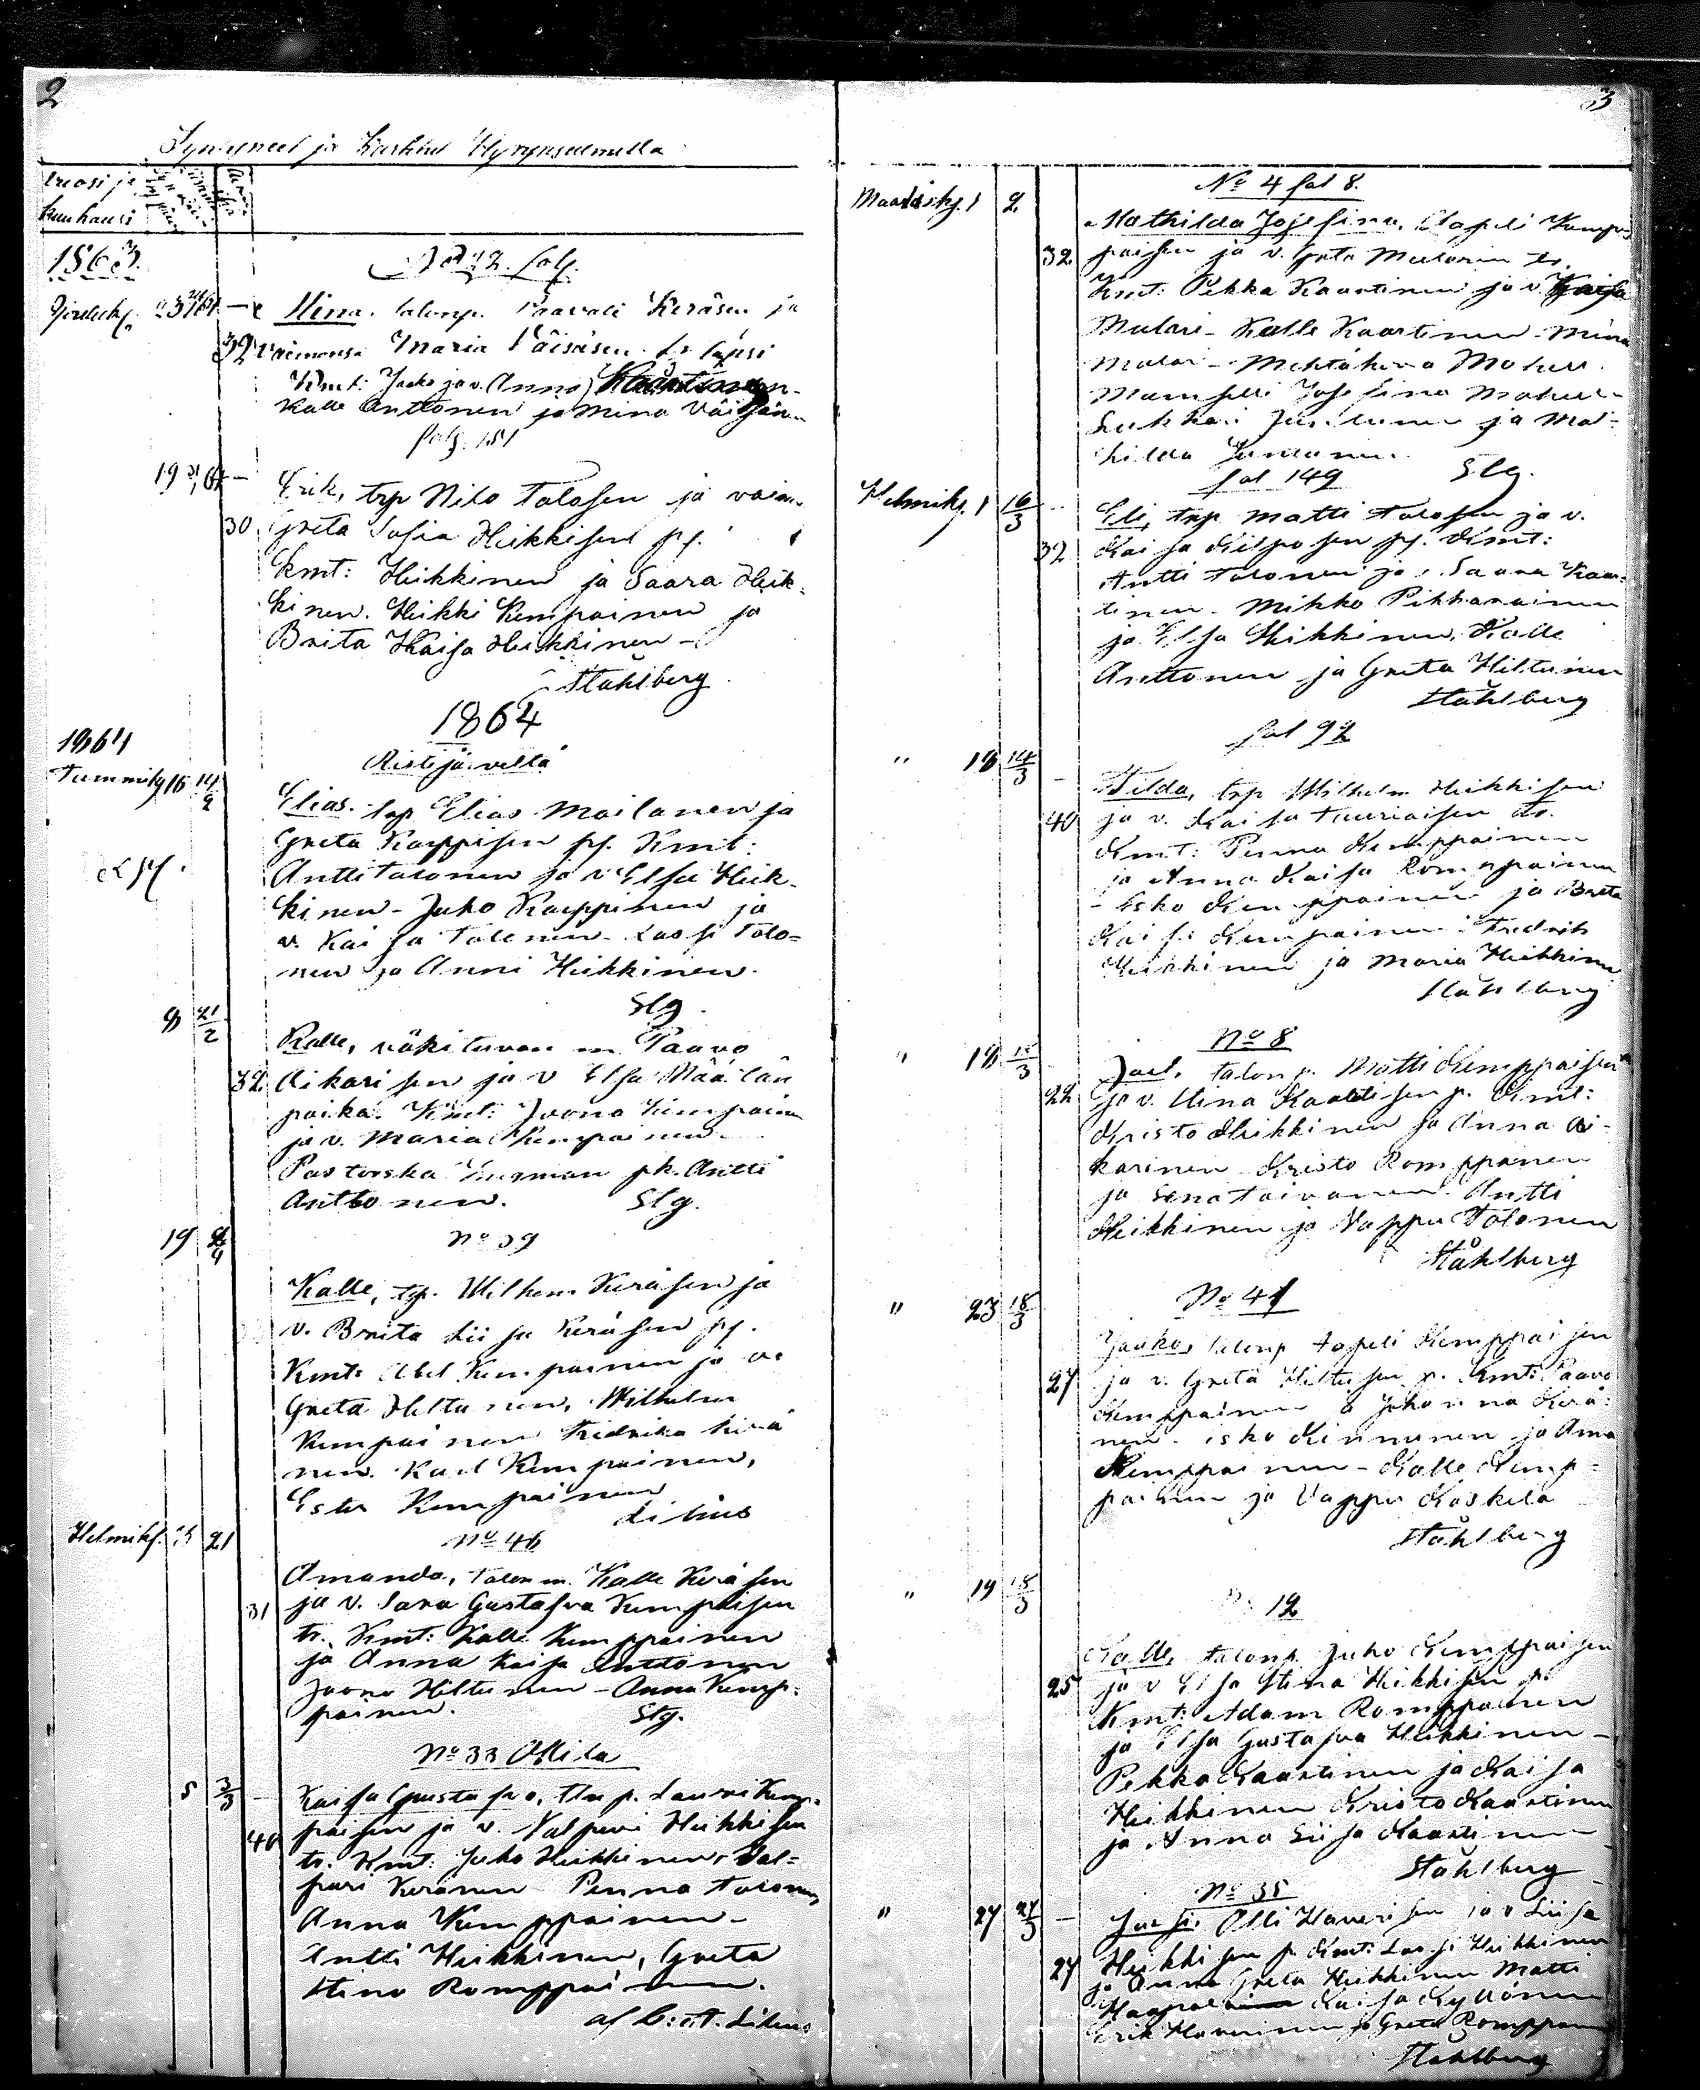 2
Syntyneet ja Kastetut Hyrynsalmella
Vuosi ja
kuukausi
1863
No 2. fol.
Joulukf. 23
Stina. talonp. Paavali Keräsen ja
32 vaimonsa Maria Väisäsen tr lapsi
Kmt: Jaako ja v. Anna Kaartinen -
Kalle Anttonen ja Mina Väisän
folg. 151
19
Erik, trp Nilo Talosen ja vaim.
30 Greta Sofia Heikkisen pf.
kmt: Heikkinen ja Saara Heik-
kinen. Heikki Kempainen ja
Brita Kaisa Heikkinen -
Ståhlberg
1864
1864
Ristijärveltä
Tammikf 16 14/2
Elias. trp Elias Moilanen ja
Greta Karppisen pf. Kmt:
Antti Talonen ja v Elsa Heik-
kinen - Juho Karppinen ja
v. Kaisa Talonen. Lassi Talo=
nen ja Anni Heikkinen.
Slg.
8 21/2
Kalle, väkituvan m. Paavo
32 Aikarisen ja v Elsa Määtän
poika. Kmt: Joona Kempainen
ja v. Maria Kempainen.
Pastorska Snerman pk. Antti
Anttonen. Slg.
19
No 39
Kalle, trp. Wilhem Keräsen ja
v. Brita Liisa Keräsen pf.
Kmt: Abel Kempainen ja v.
Greta Heltunen, Wilhelm
Kempainen Fredrika Kerä
nen. Karl Kempainen,
Ester Kempainen
Lilius
Helmikf. 21
No 46
Amanda, talon m. Kalle Keräsen
31 ja v. Sara Gustafva Kempaisen
tr. Kmt: Kalle Kemppainen
ja Anna Kaisa Anttonen
Joono Hiltunen - Anna Kemp-
painen. Slg.
No 33 Ollila
5 3/3
Kaisa Gustafva, tln p. Lauri Kem-
paisen ja v. Valpuri Heikkisen
40 tr. Kmt: Juho Heikkinen, Val=
puri Keränen Penna Talonen
Anna Kemppainen -
Antti Heikkinen, Greta
Stina Romppainen.
af C. A. Lilius
3
Maaliskf. 1 2
No 4 fol 8.
Mathilda Josefina, Tapeli Kemp
32 paisen ja v. Greta Mularin tr.
Kmt: Pekka Kaartinen ja v. Kaisa
Mulari - Kalle Kaartinen - Mina
Mulari - Mehtäherra Mohell.
Mamselli Josefina Mohell -
Lukkari Juntunen ja Mat-
hilda Juntunen.
fol 149 Slg.
Helmikf. 1 16/3
Eli, trp Matti Talosen ja v.
32 Kaisa Kilposen pf. Kmt:
Antti Talonen ja v. Saara Kaar-
tinen. Mikko Pikkarainen
ja Elsa Heikkinen, Kalle
Anttonen ja Greta Hiltunen
Ståhlberg
fol 92
" 18 14/3
Tilda, trp Wilhelm Heikkisen
40 ja v. Kaisa Tauriaisen tr.
Kmt: Penna Kemppainen
ja Anna Kaisa Romppainen
- Esko Kemppainen ja Breta
Kaisa Kempainen - Fredrik
Heikkinen ja Maria Heikkinen
Ståhlberg
No 8
" 18 15/3
Joel, talonp. Matti Kemppaisen
22 ja v. Stina Kaartisen p. Kmt:
Kristo Heikkinen ja Anna Ai-
karinen. Kristo Romppanen
ja Sena Toivanen. Antti
Heikkinen ja Vappu Talonen
Ståhlberg
No 41
" 23 18/3
Jaako, talonp Tapeli Kemppaisen
27 ja v. Greta Hiltusen p. Kmt: Paavo
Kemppainen a Johanna Kerä-
nen. Esko Kinnunen ja Anna
Kemppainen - Kalle Kemp=
painen ja Vappu Koskela
Ståhlberg
" 19 18/3
12
Kalle, talonp. Juho Kemppaisen
25 ja v Elsa Stina Heikkisen p.
Kmt: Adam Romppainen
ja Elsa Gustafva Heikkinen -
Pekka Kaartinen ja Kaisa
Heikkinen Kristo Kaartinen
ja Anna Liisa Kaartinen
Ståhlberg
No 35
" 27 27/3
Olli Haverisen ja v Liisa
27 Heikkisen p. Kmt: Lassi Heikkinen
ja Anna Greta Heikkinen Matti
Kaisa Kyllönen
Erik Haverinen ja Greta Romppanen
Ståhlberg